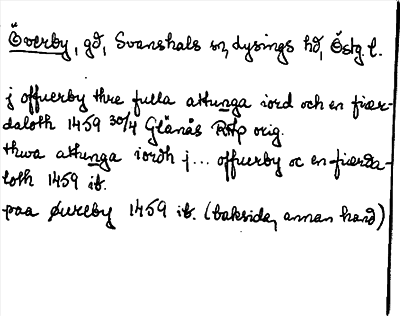 Överby, gd, Svanshals sn, dysings hd, Östg. l.
j offuerby thre fulla attunga iord och en fiær-
daloth 1459 30/4 Glänås RAp orig.
thwa attunga iordh j... offuerby oc en fiærda-
loth 1459 ib.
paa øuerby 1459 ib. (baksida, annan hand)